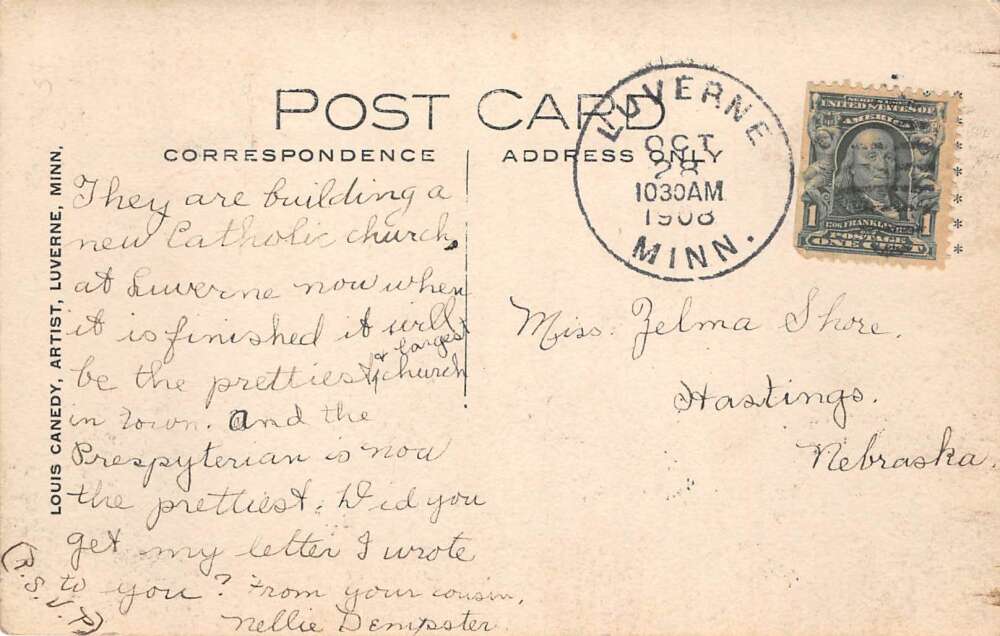 POST CARD
CORRESPONDENCE
ADDRESS ONLY
LOUIS CANEDY, ARTIST, LUVERNE, MINN.
They are building a
new Catholic church
at Luverne now when
it is finished it will
& largest
be the prettiest church
in town. and the
Prespyterian is now
the prettiest. Did you
get my letter I wrote
to you? From your cousin,
Nellie Dempster.
(R.S.V.P)
LUVERNE
OCT
28
1030AM
1908
MINN.
SERIES 1902
UNITED STATES OF
AMERICA
1 1
FRANKLIN
POSTAGE
ONE CENT
Miss. Zelma Shore.
Hastings.
Nebraska.